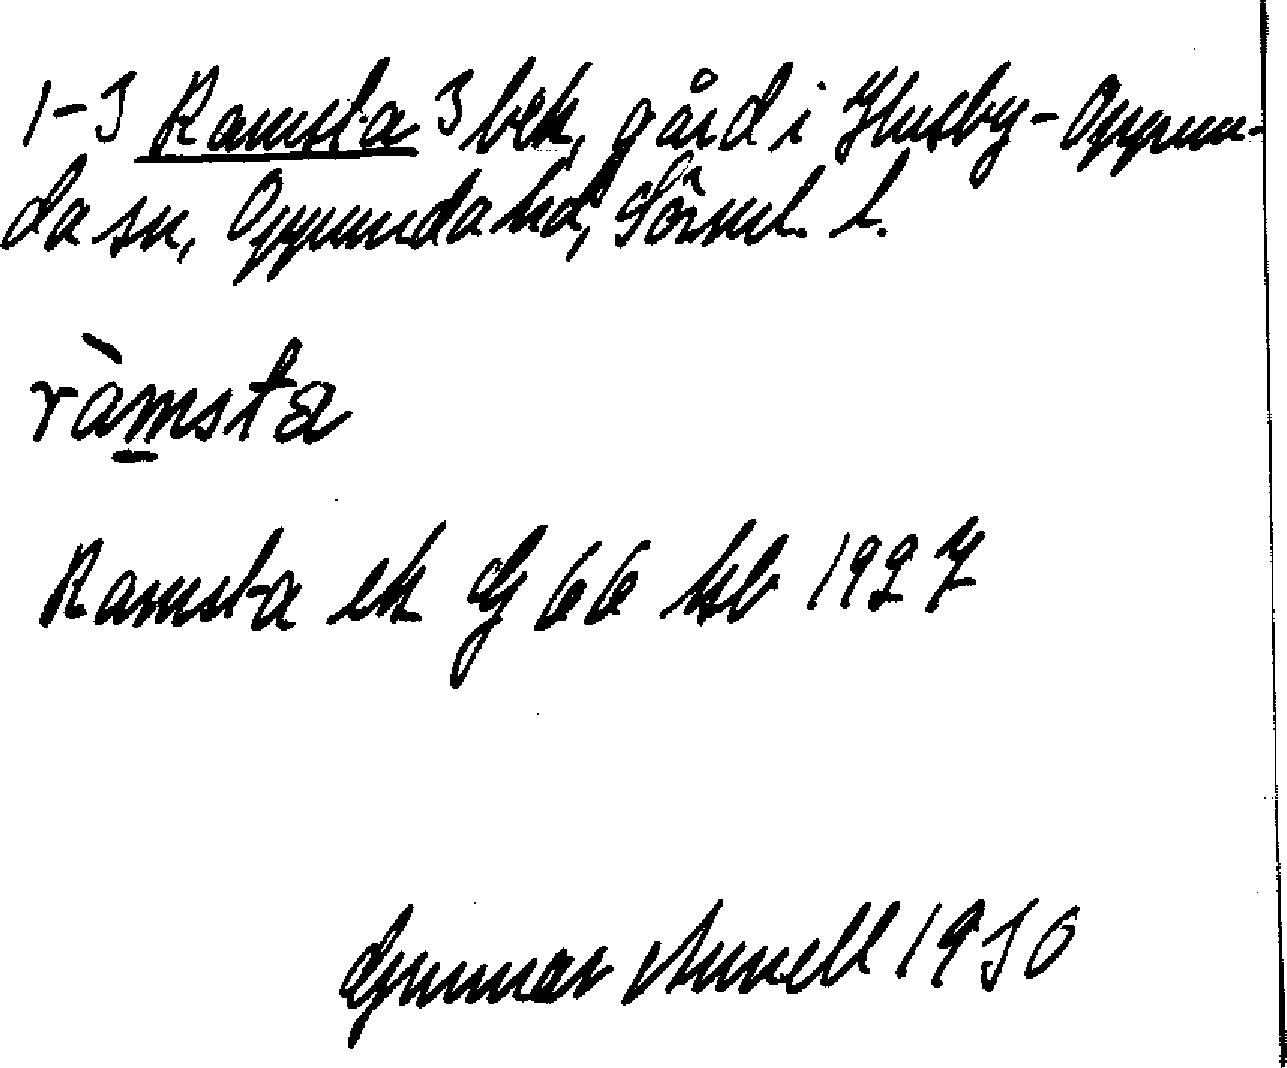 1-3 Ramsta 3 bek, gård i Husby-Oppun-
da sn, Oppunda hd, Sörml. l.
ràmsta
Ramsta ek G 66 hsb 1927
Gunnar 1930